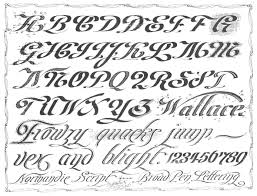 A B C D E F F G
G H I J K L M
A N O P Q R S T
T U V W X Y Z Wallace,
Frowzy quacks jump,
vex and blight. 1234567890
Normandie Script Broad Pen Lettering